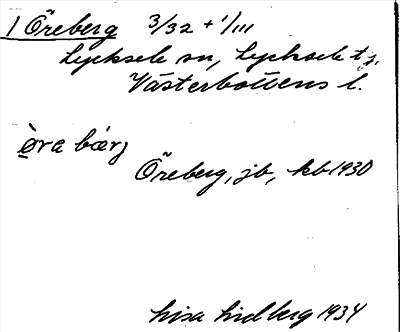 1 Öreberg 3/32 + 1/III
Lycksele sn, Lycksele tg.
Västerbottens l.
ø̀ra bærj
Öreberg, jb, kb 1930
Lisa Lidberg 1934